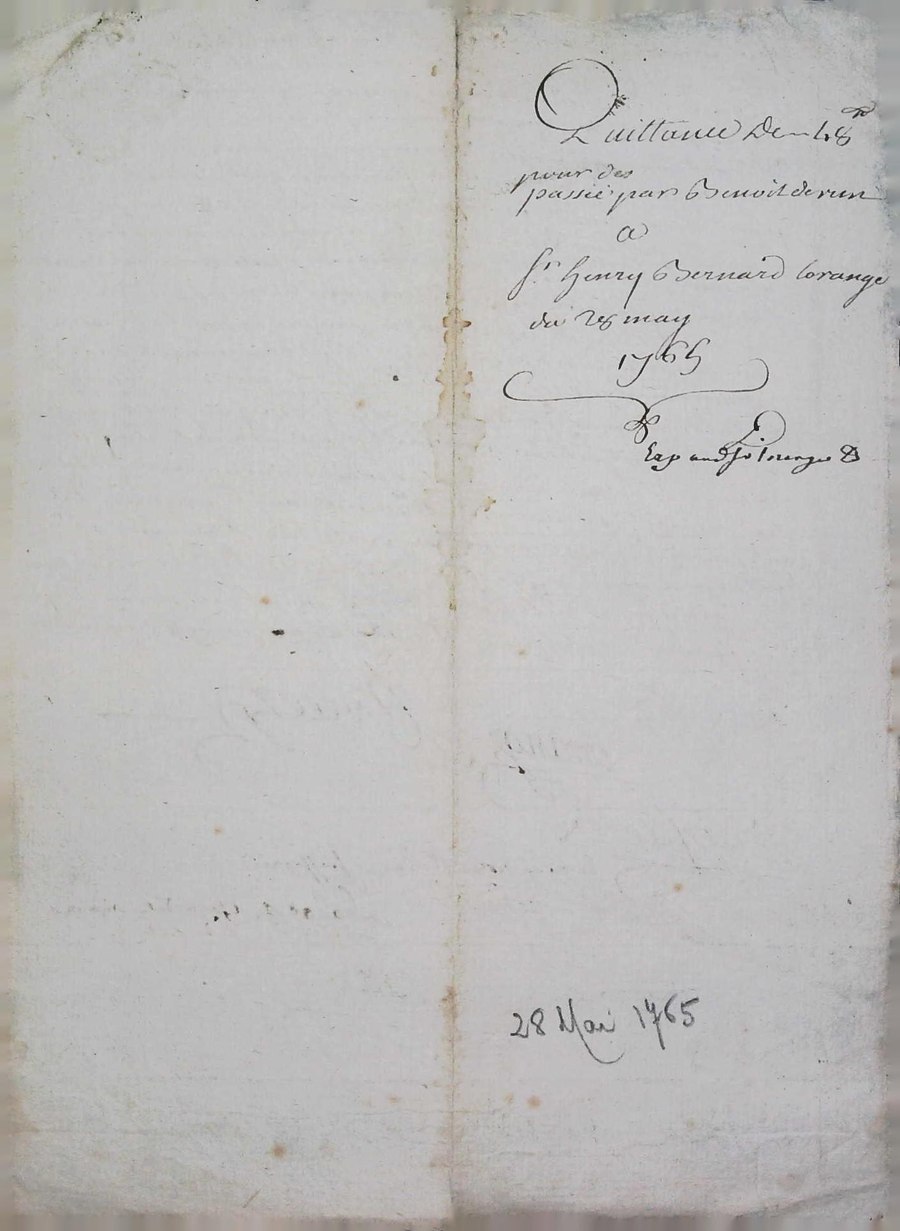 Quittance De 48 ₶
pour des
passée par Benoit derun
a
Sr. henry Bernard lorange
du 28 may
1765
Exp
28 Mai 1765